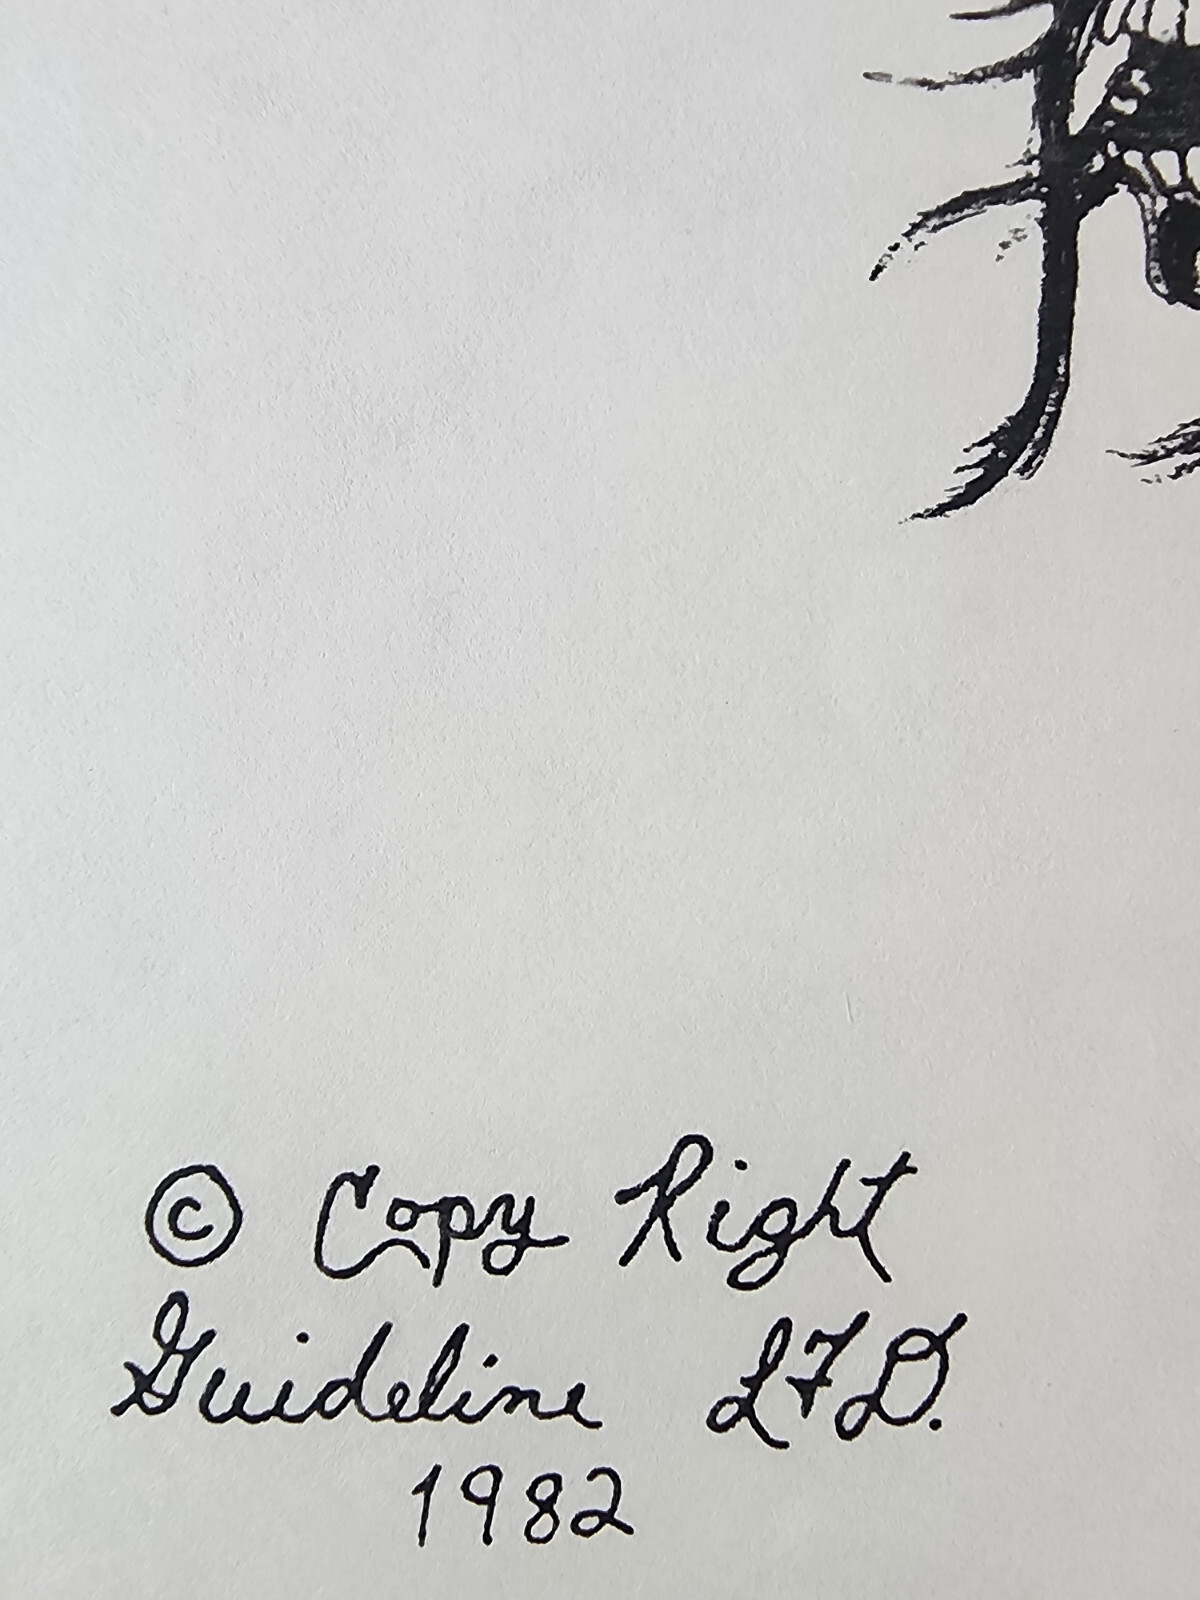 © Copy Right
Guideline LTD.
1982